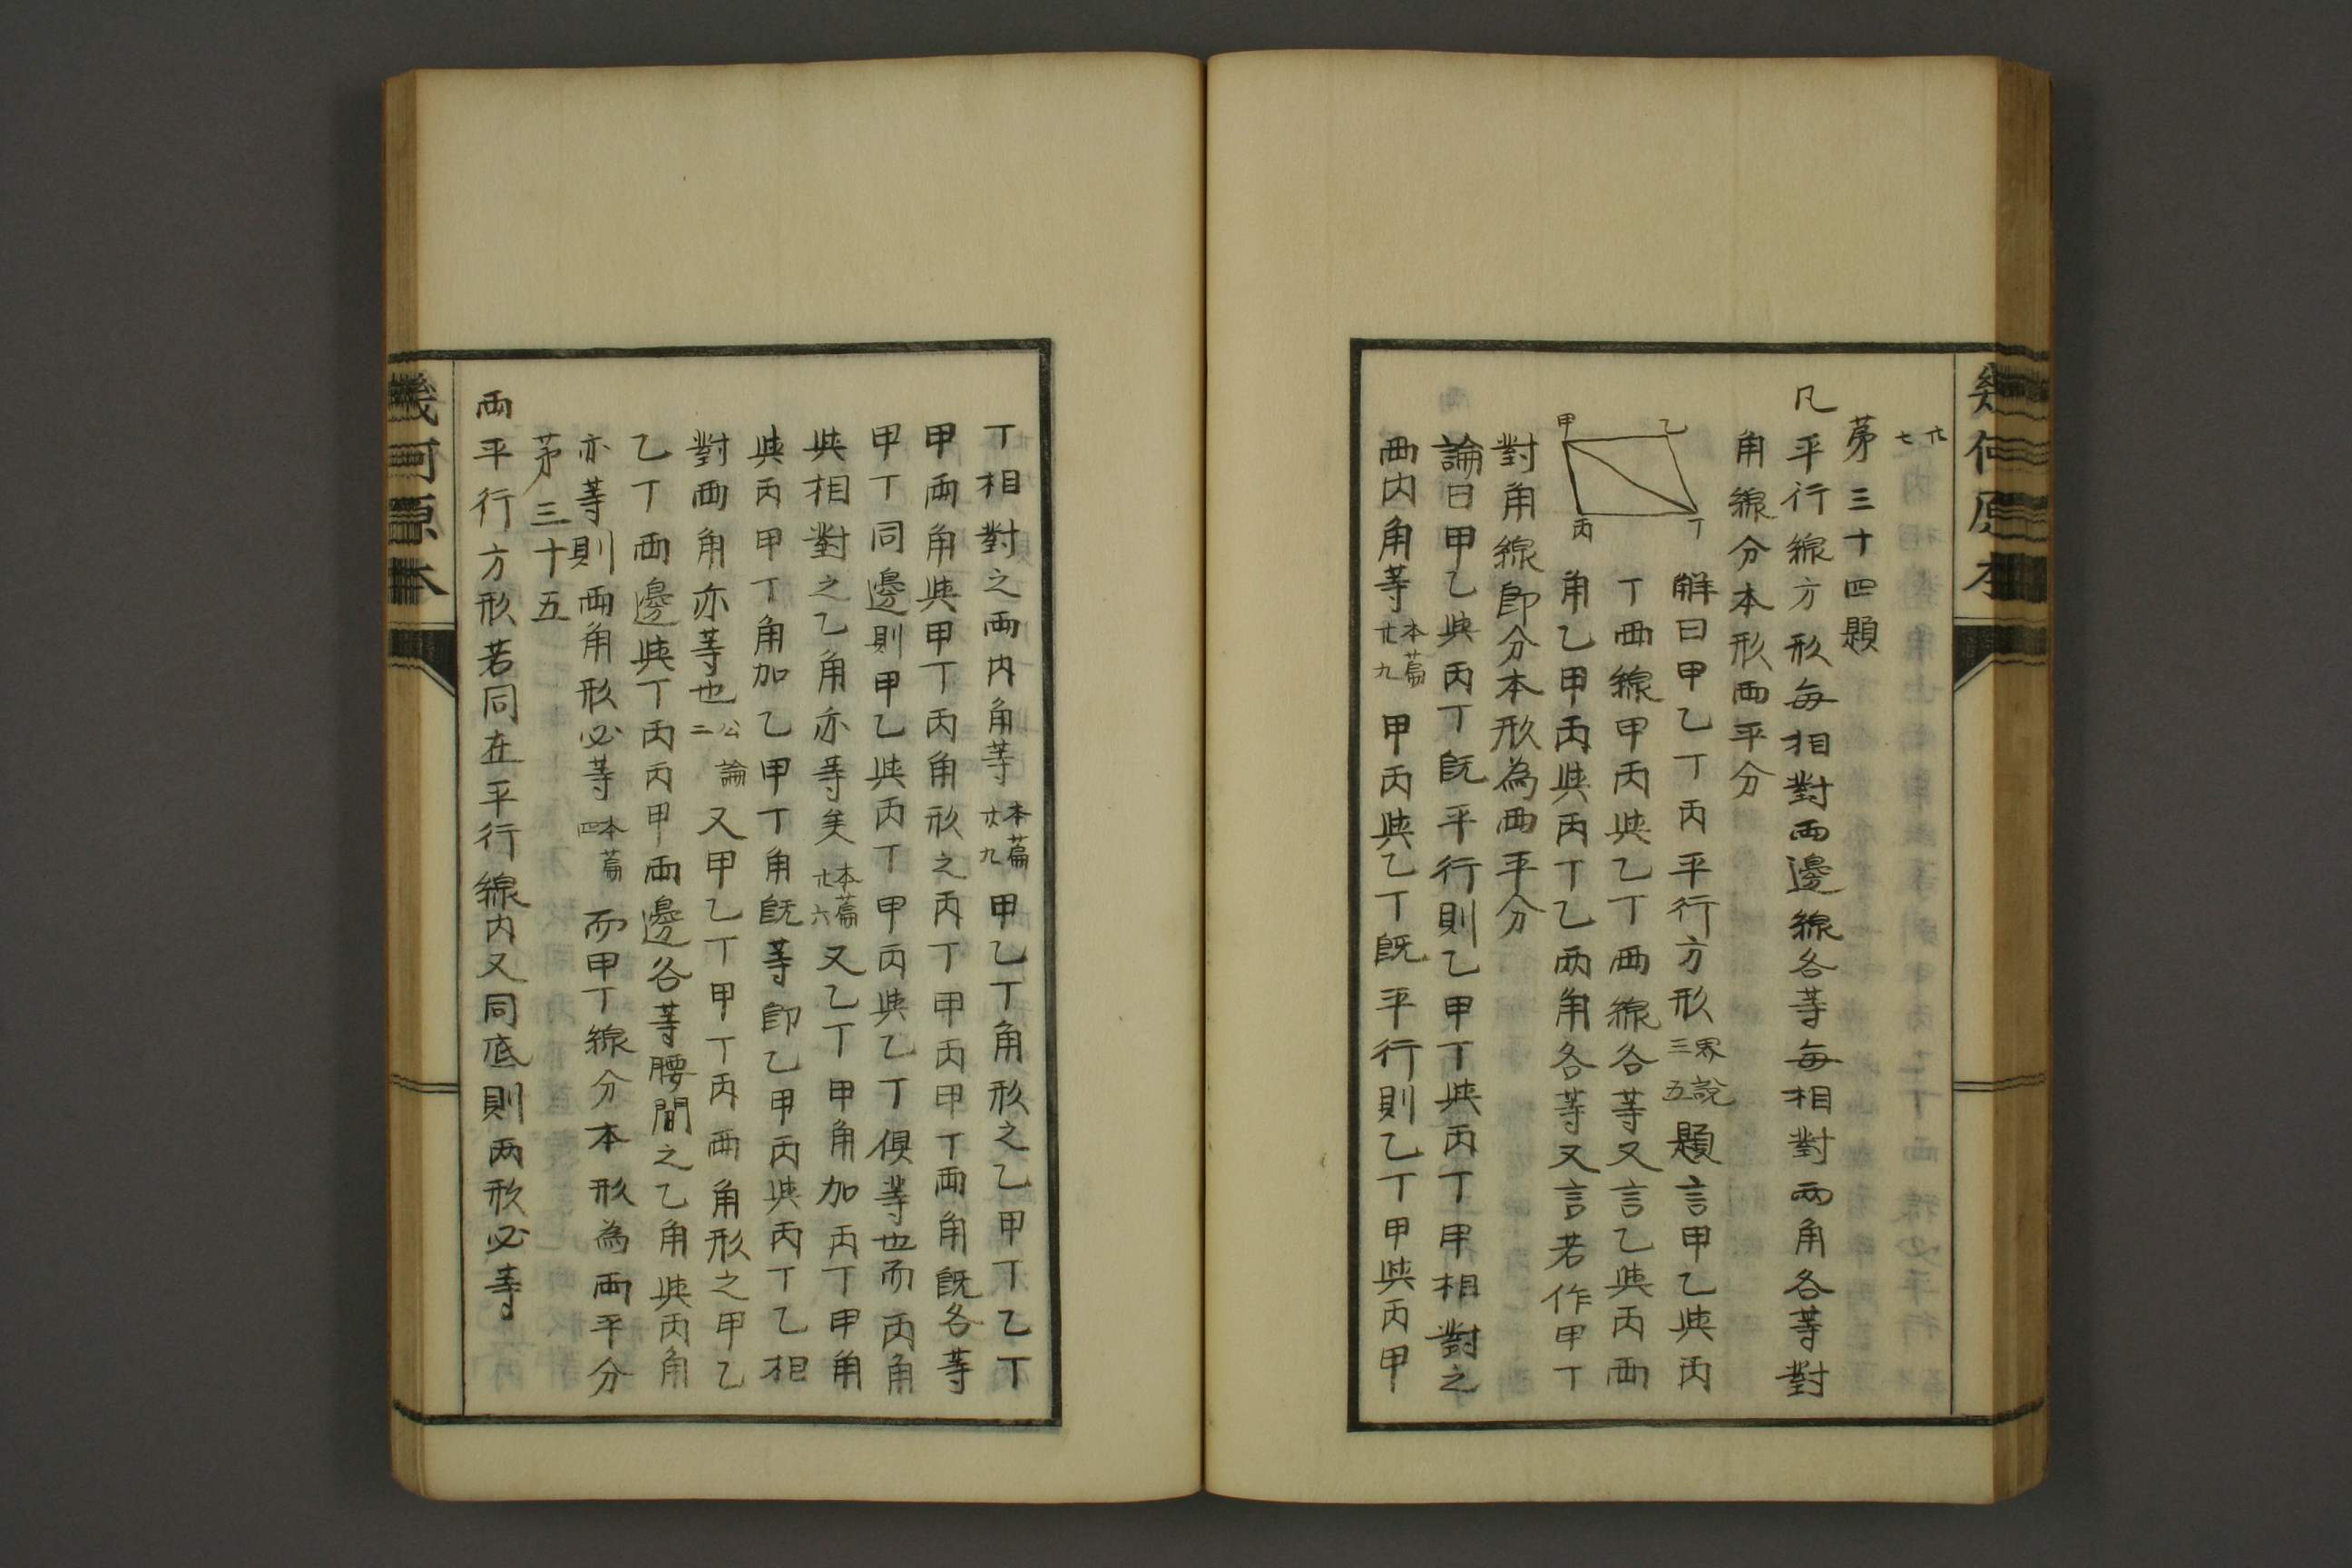 幾何原本
廿七
苐三十四題
凡平行線方形每相對兩邊線各等每相對兩角各等對
角線分本形兩平分
甲 乙 丙 丁
解曰甲乙丁丙平行方形界說三五題言甲乙與丙
丁兩線甲丙與乙丁兩線各等又言乙與丙兩
角乙甲丙與丙丁乙兩角各等又言若作甲丁
對角線卽分本形為兩平分
論曰甲乙與丙丁旣平行則乙甲丁與丙丁甲相對之
兩内角等本篇廿九甲丙與乙丁旣平行則乙丁甲與丙甲
丁相對之兩内角等本篇廿九甲乙丁角形之乙甲丁乙丁
甲兩角與甲丁丙角形之丙丁甲丙甲丁兩角旣各等
甲丁同邊則甲乙與丙丁甲丙與乙丁俱等也而丙角
與相對之乙角亦等矣本篇廿六又乙丁甲角加丙丁甲角
與丙甲丁角加乙甲丁角旣等卽乙甲丙與丙丁乙相
對兩角亦等也公論二又甲乙丁甲丁丙兩角形之甲乙
乙丁兩邊與丁丙丙甲兩邊各等腰間之乙角與丙角
亦等則兩角形必等本篇四而甲丁線分本形為兩平分
苐三十五
兩平行方形若同在平行線内又同底則兩形必等
幾何原本